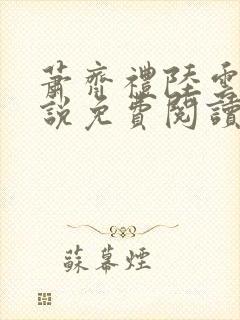 蕭齊禮陸雲
說免費閱讀
蘇幕煙